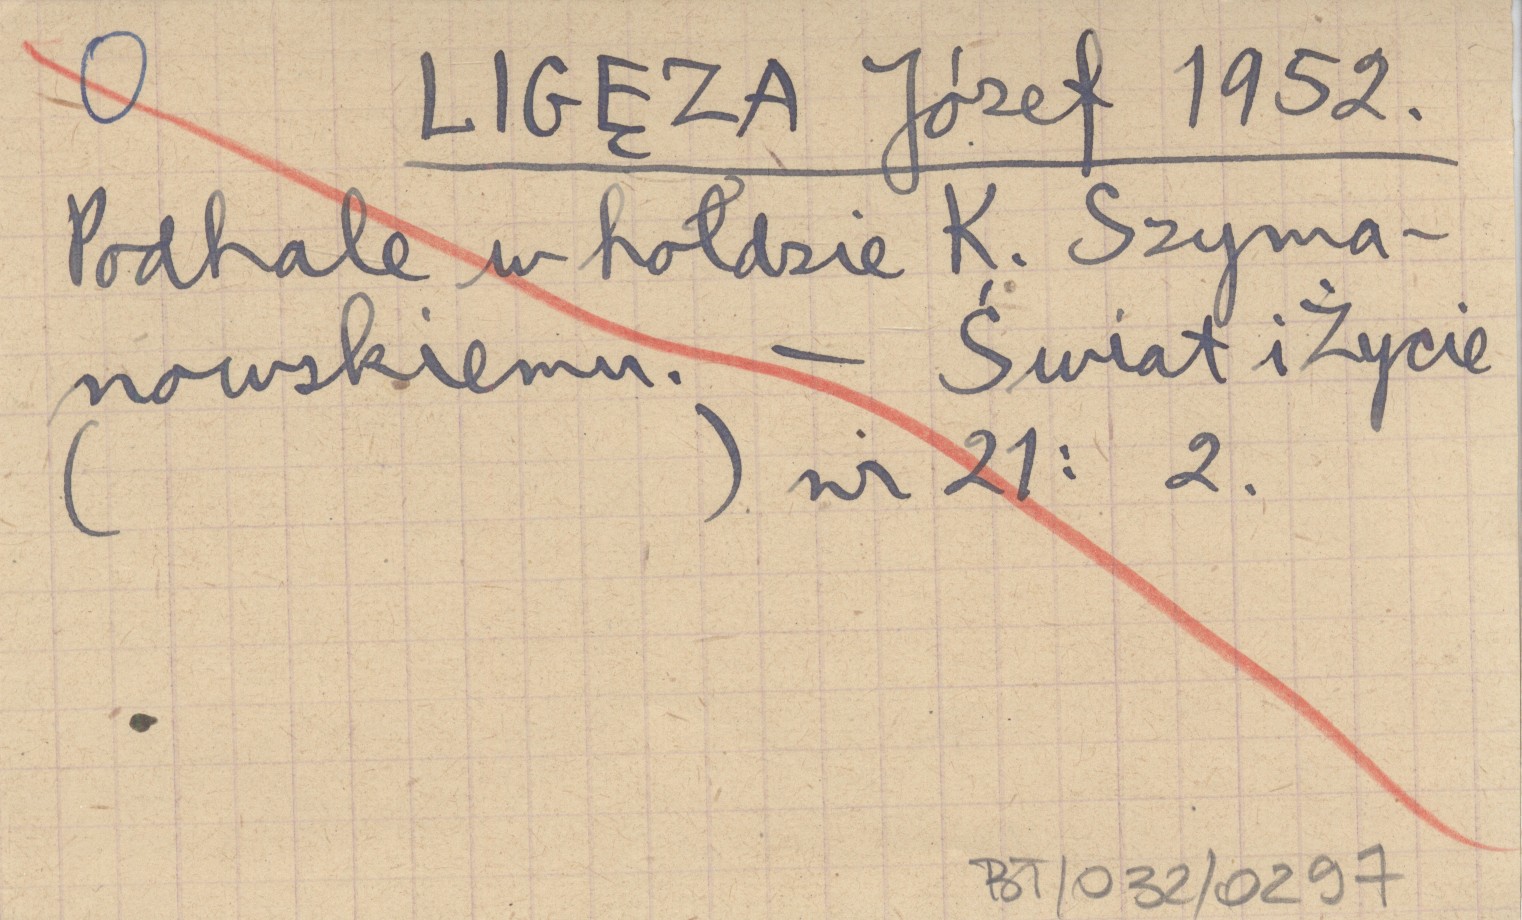 O LIGĘZA Józef 1952.
Podhale w hołdzie K. Szyma-
nowskiemu. — Świat i Życie
( ) nr 21: 2.
BT/032/0297